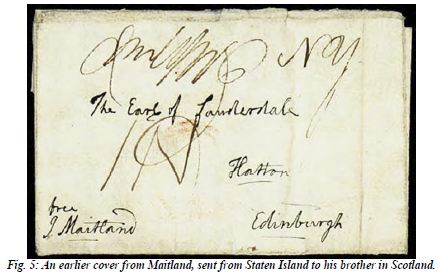 N Y
The Earl of Lauderdale
Hatton
free
J Maitland
Edinburgh
Fig. 5: An earlier cover from Maitland, sent from Staten Island to his brother in Scotland.